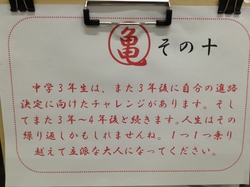 亀 その十
中学3年生は、また3年後に自分の進路
決定に向けたチャレンジがあります。そし
てまた3年~4年後と続きます。人生はその
繰り返しかもしれませんね。1つ1つ乗り
越えて立派な大人になってください。